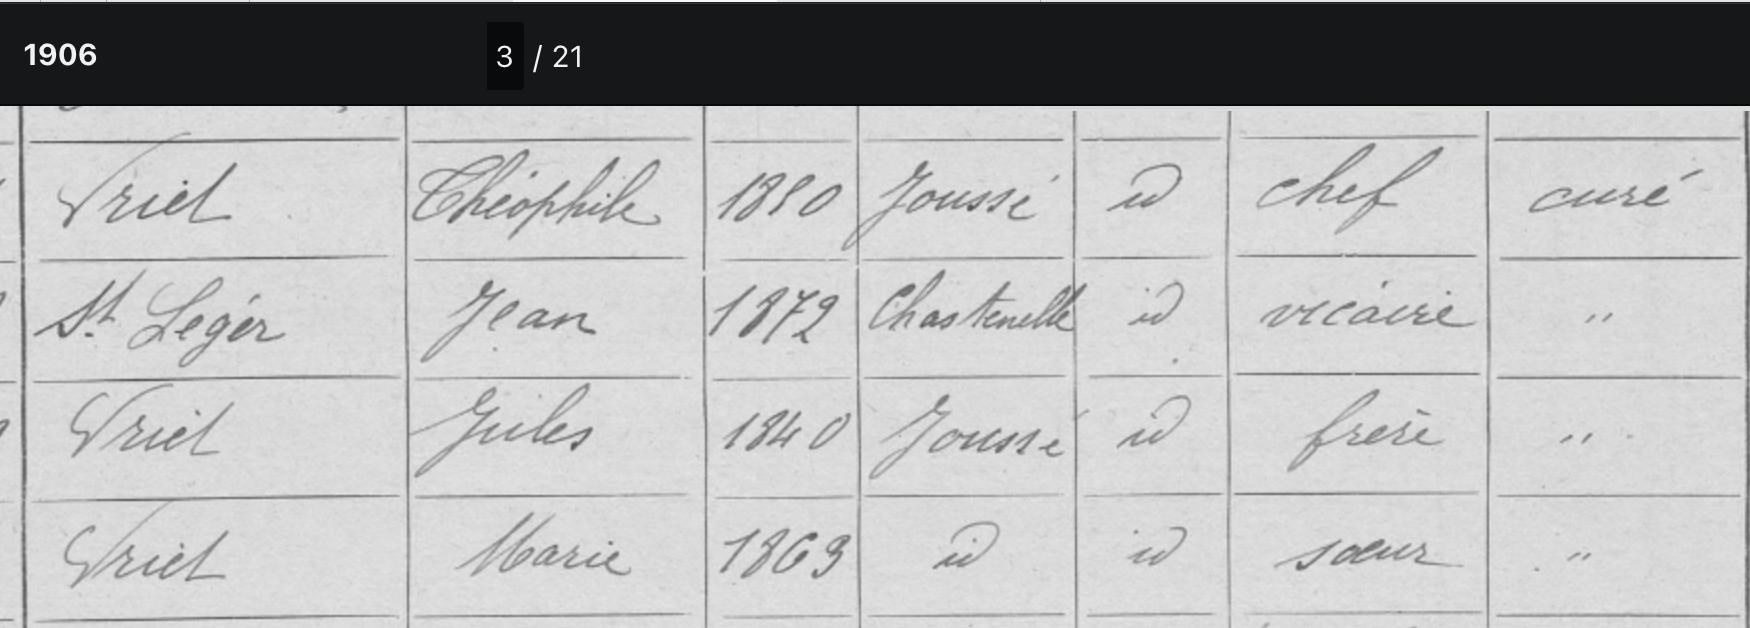 1906 3 / 21
Vriet Théophile 1850 Joussé id chef curé
St. Léger Jean 1872 id vicaire "
Vriet Jules 1840 Joussé id frère "
Vriet Marie 1863 id id sœur "